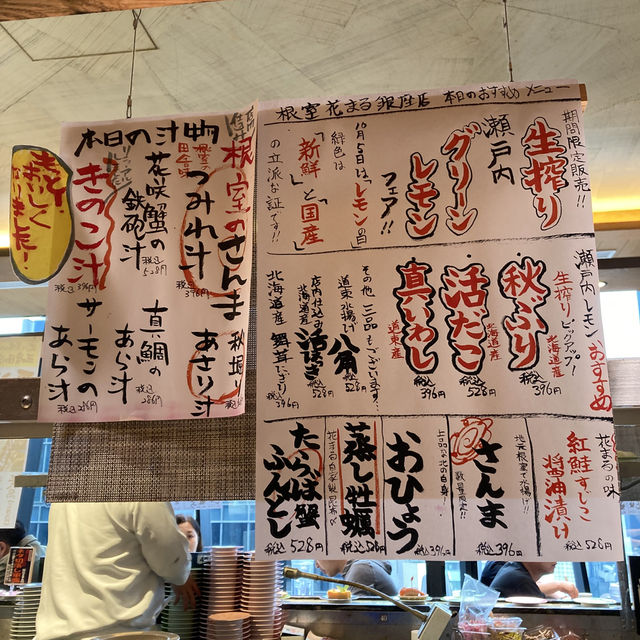 根室花まる銀座店 本日のおすすめメニュー
期間限定販売!!
生搾り
瀬戸内
グリーン
レモン
フェア!!
10月5日は「レモンの日」
緑色は
「新鮮」と「国産」
の立派な証です!!
瀬戸内レモンおすすめ
生搾りピックアップ!
秋ぶり
北海道産
税込396円
活だこ
北海道産
税込528円
真いわし
道東産
税込396円
その他、二品もございます…
道東水揚げ 八角
税込528円
店内仕込み
北海道産 活つぶ
税込528円
北海道産
税込396円
花まるの味
紅鮭すじこ
醤油漬け
税込528円
北天根室で水揚げ!!
さんま
数量限定!!
税込396円
上品な白身!
おひょう
税込396円
蒸し牡蠣
税込528円
たらば蟹
ふんどし
税込528円
本日の汁物
根室のさんま
つみれ汁
税込396円
秋堀り
あさり汁
税込
花咲蟹の
鉄砲汁
税込528円
真鯛の
あら汁
税込286円
きのこ汁
税込396円
サーモンの
あら汁
税込286円
もっと
おいしく
なりました!